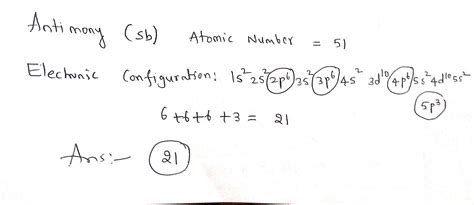 Antimony (sb) Atomic Number = 51
Electronic Configuration: 1s² 2s² 2p⁶ 3s² 3p⁶ 4s² 3d¹⁰ 4p⁶ 5s² 4d¹⁰ 5s²
5p³
6+6+6+3 = 21
Ans:- 21